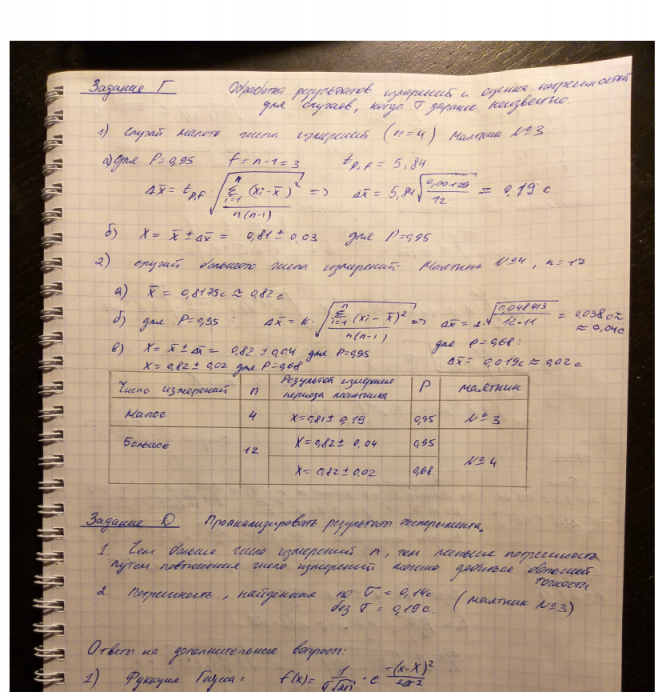 Задание Г Обработка результатов измерений и оценка погрешностей
для случаев, когда σ заранее неизвестно.
1) Случай малого числа измерений (n=4) Маятник №3
а) для P=0,95 f=n-1=3 t_{P,f} = 5,84
Δx̄ = t_{P,f} √(∑_{i=1}^{n} (xi-x̄)² / n(n-1)) => Δx̄ = 5,84 √( / 12) = 0,19 с
б) X = x̄ ± Δx̄ = 0,81 ± 0,03 для P=0,95
2) случай большого числа измерений Маятник №4, n=12
а) x̄ = 0,8175с ≈ 0,82с
б) для P=0,95: Δx̄ = k · √(∑_{i=1}^{n} (xi-x̄)² / n(n-1)) => Δx̄ = 2 · √(0,048413 / 12·11) = 0,038с ≈
≈ 0,04с
для P=0,68:
в) X = x̄ ± Δx̄ = 0,82 ± 0,04 для P=0,95 Δx̄ = 0,019с ≈ 0,02с
X = 0,82 ± 0,02 для P=0,68
Число измерений n Результат измерения периода маятника P маятник
Малое 4 X=0,81± 0,19 0,95 №3
Большое 12 X=0,82± 0,04 0,95 №4
X=0,82±0,02 0,68
Задание D Проанализировать результаты эксперимента.
1. Чем больше число измерений n, тем меньше погрешность
путем повышения числа измерений можно добиться большей
точности
2. Погрешность, найденная по σ = 0,14с
без σ = 0,19с (маятник №3)
Ответы на дополнительные вопросы:
1) Функция Гаусса: f(x) = 1 / σ√2π · e^{-(x-X)² / 2σ²}